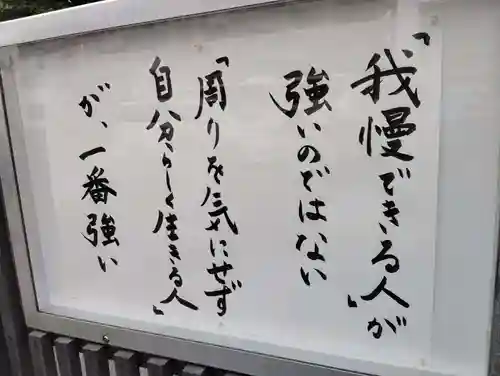 「我慢できる人」が
強いのではない
「周りを気にせず
自分らしく生きる人」
が、一番強い